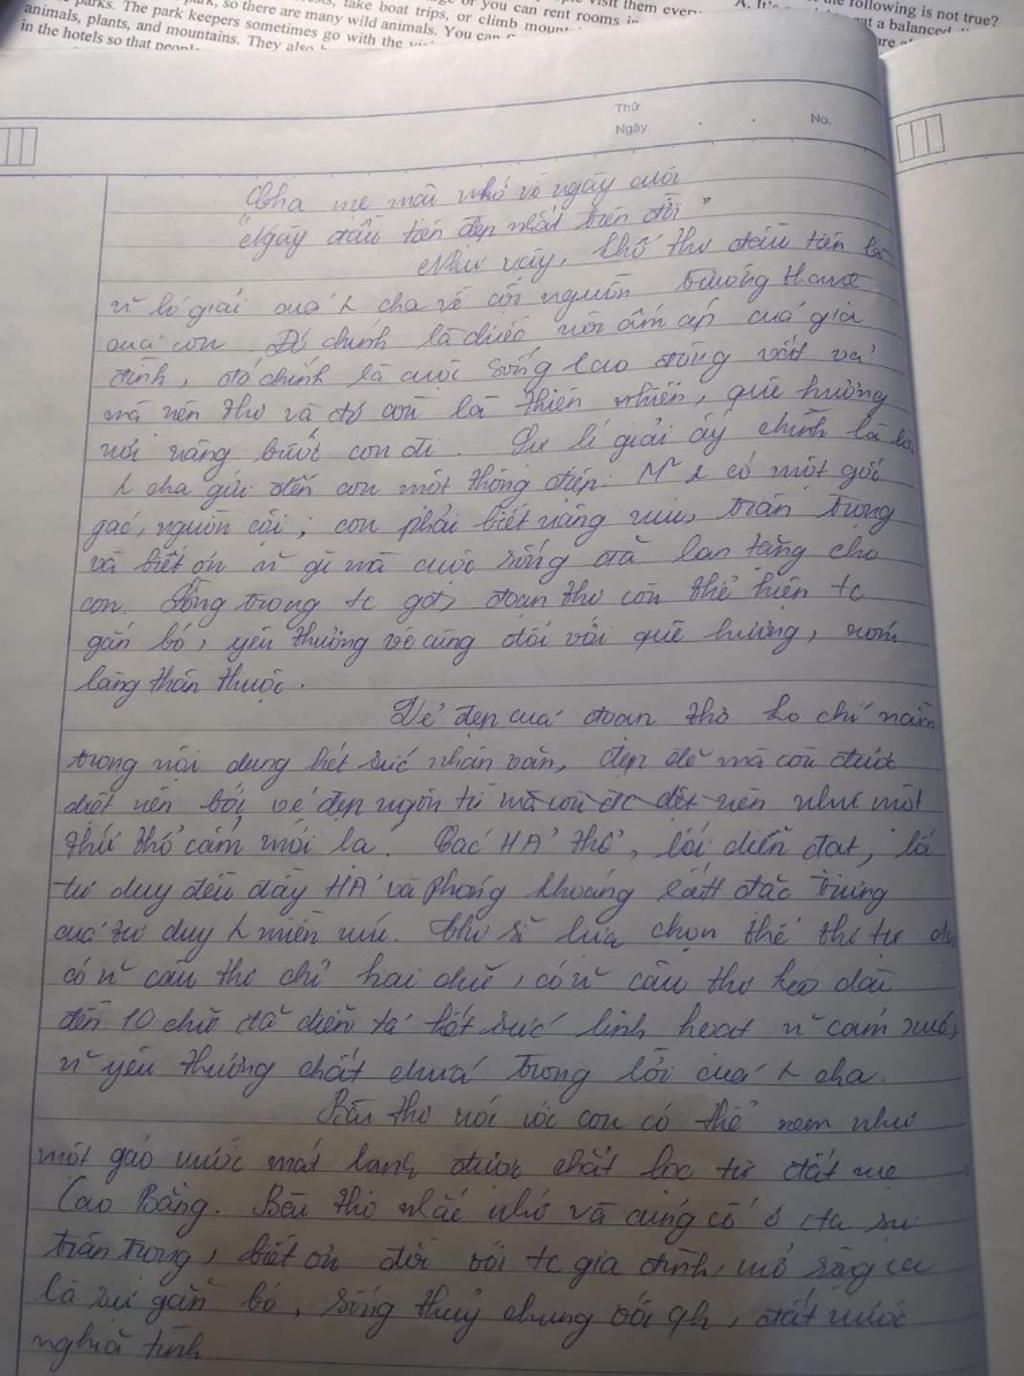 visit them every
of you can rent rooms in
A. It's
the following is not true?
parks. The park keepers sometimes go with the
so there are many wild animals. You can
take boat trips, or climb
animals, plants, and mountains. They also
at a balanced
in the hotels so that people
Thứ
Ngày
No.
Cha mẹ mãi nhớ về ngày cưới
"Ngày đầu tiên đẹp nhất trên đời"
Như vậy, khổ thơ đầu tiên là
lí giải của cha về cội nguồn trưởng thành
của con. Đó chính là chiếc nôi ấm áp của gia
đình, đó chính là cuộc sống lao động vất vả
mà nên thơ và đó còn là thiên nhiên, quê hương
nơi nâng bước con đi. Sự lí giải ấy chính là
cha gửi đến con một thông điệp: M có một gốc
gác, nguồn cội; con phải biết nâng niu, trân trọng
và biết ơn gì mà cuộc sống đã ban tặng cho
con. Lồng trong tc gđ, đoạn thơ còn thể hiện tc
gắn bó, yêu thương vô cùng đối với quê hương, xóm
làng thân thuộc.
Vẻ đẹp của đoạn thơ ko chỉ nằm
trong nội dung hết sức nhân văn, đẹp đẽ mà còn được
dệt nên bởi vẻ đẹp ngôn từ mà còn đc dệt nên như một
thứ thổ cẩm mới lạ. Các HẢ thơ, lối diễn đạt, là
tư duy đều đầy HẢ và phóng khoáng rất đặc trưng
của tư duy miền núi. Thi sĩ lựa chọn thể thơ tự do
có câu thơ chỉ hai chữ, có câu thơ kéo dài
đến 10 chữ đã diễn tả hết sức linh hoạt cảm xúc,
yêu thương chất chứa trong lời của cha.
Bài thơ nói với con có thể xem như
một gáo nước mát lành được chắt lọc từ đất mẹ
Cao Bằng. Bài thơ nhắc nhớ và củng cố ở cta sự
trân trọng, biết ơn đối với tc gia đình, mở rộng ra
là sự gắn bó, sống thuỷ chung với qh, đất nước
nghĩa tình.